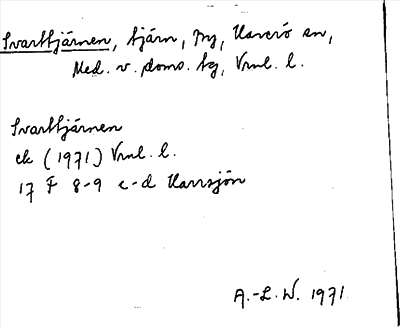 Svarttjärnen, tjärn, Ny, Haverö sn,
Med. v. doms. tg, Vrnl. l.
Svarttjärnen
ek (1971) Vrnl. l.
17 F 8-9 c-d Harrsjön
A.-L. W. 1971